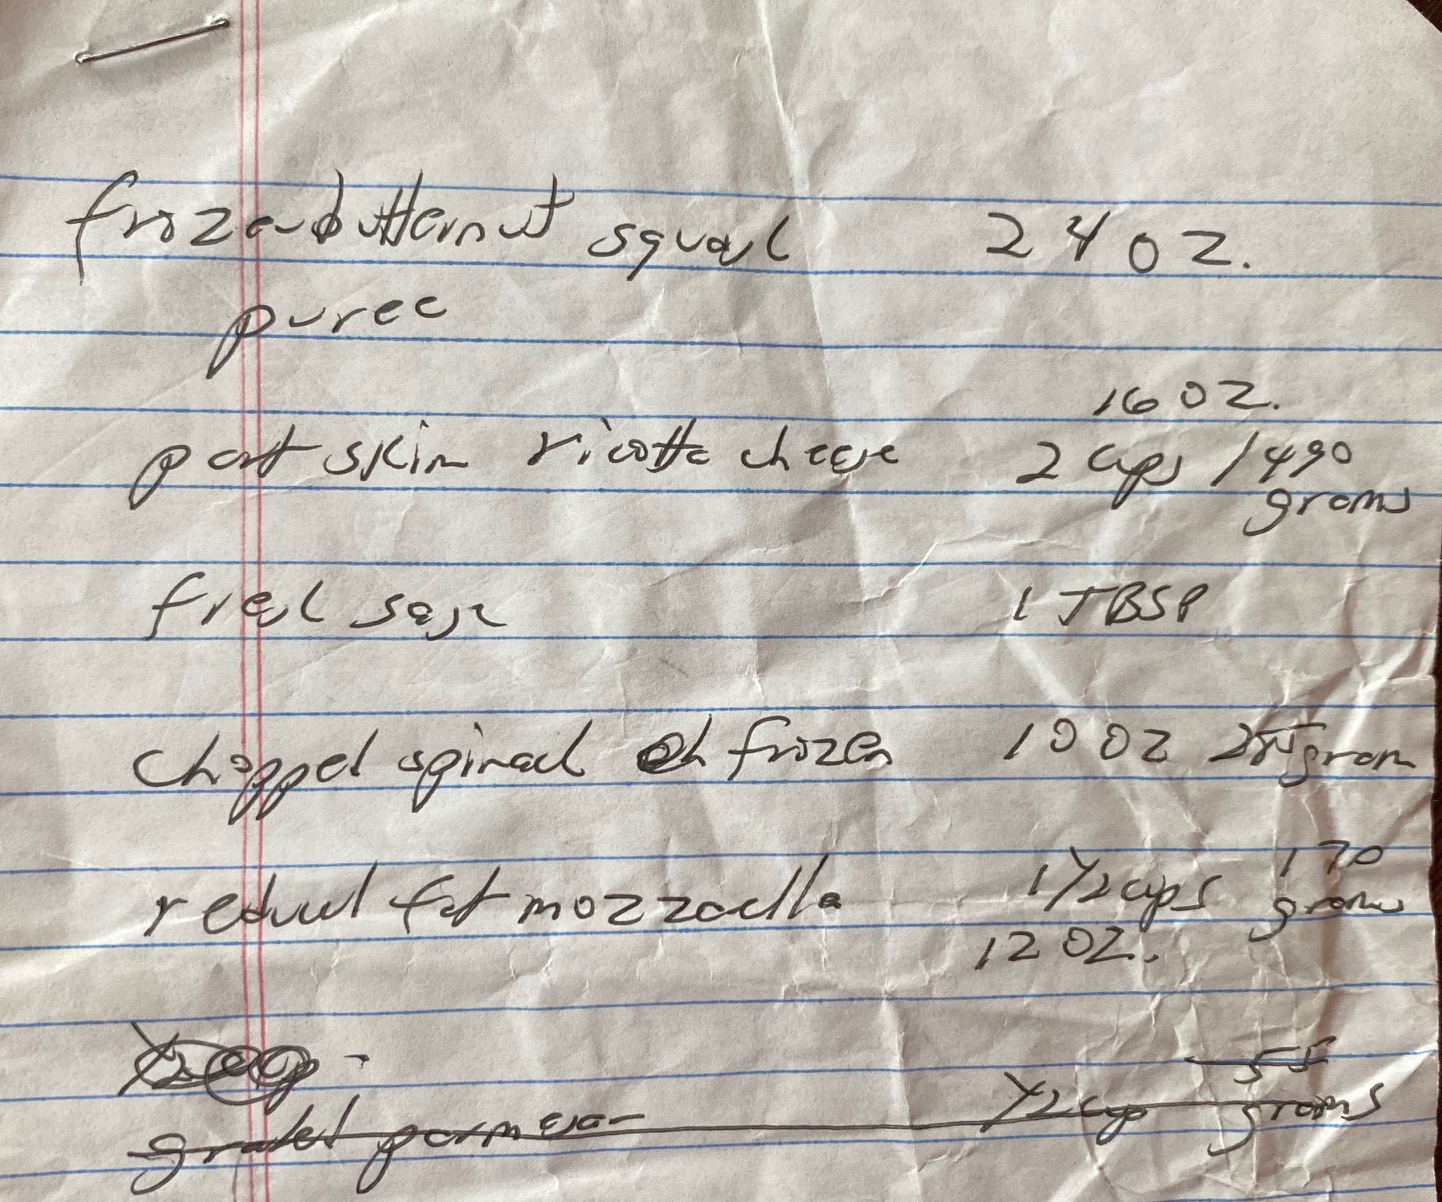 frozen butternut squash 24 oz.
puree
16 oz.
part skim ricotta cheese 2 cups / 490
grams
fresh sage 1 TBSP
chopped spinach frozen 10 oz gram
170
reduced fat mozzarella 1 1/2 cups grams
12 oz.
55
grated parmesan 1/2 cup grams